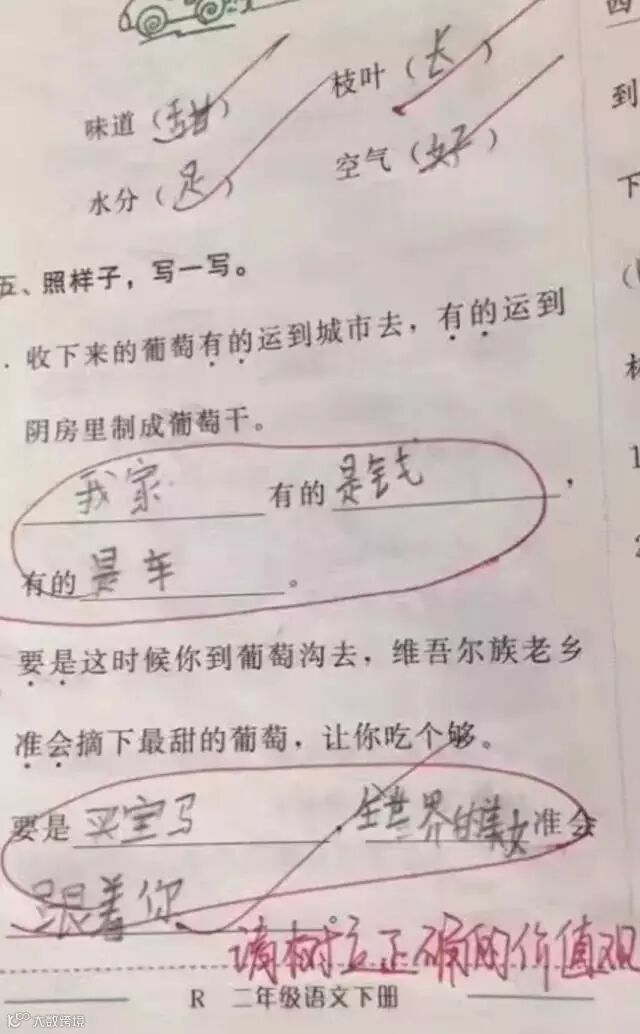 味道（甜）
枝叶（长）
水分（足）
空气（好）
五、照样子，写一写。
收下来的葡萄有的运到城市去，有的运到
阴房里制成葡萄干。
我家有的是钱，
有的是车。
要是这时候你到葡萄沟去，维吾尔族老乡
准会摘下最甜的葡萄，让你吃个够。
要是买宝马，全世界的美女准会
跟着你。
请树立正确的价值观
R 二年级语文下册
四
到
下
1
大数跨境